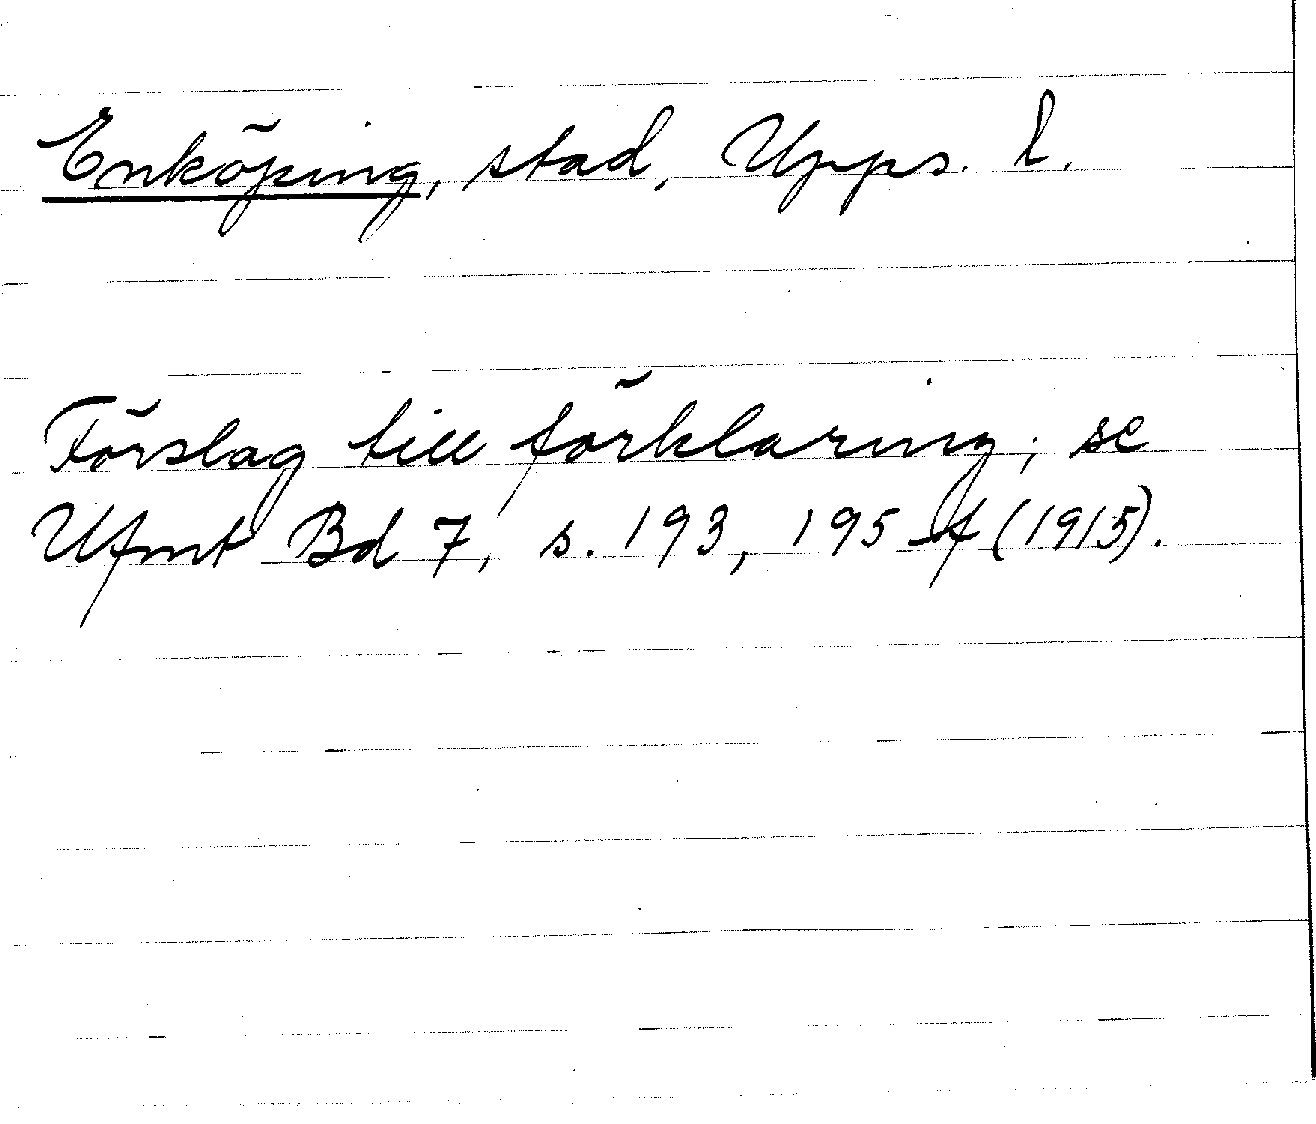 Enköping, stad, Upps. l.
Förslag till förklaring; se
Ufmt Bd 7, s. 193, 195 f (1915).